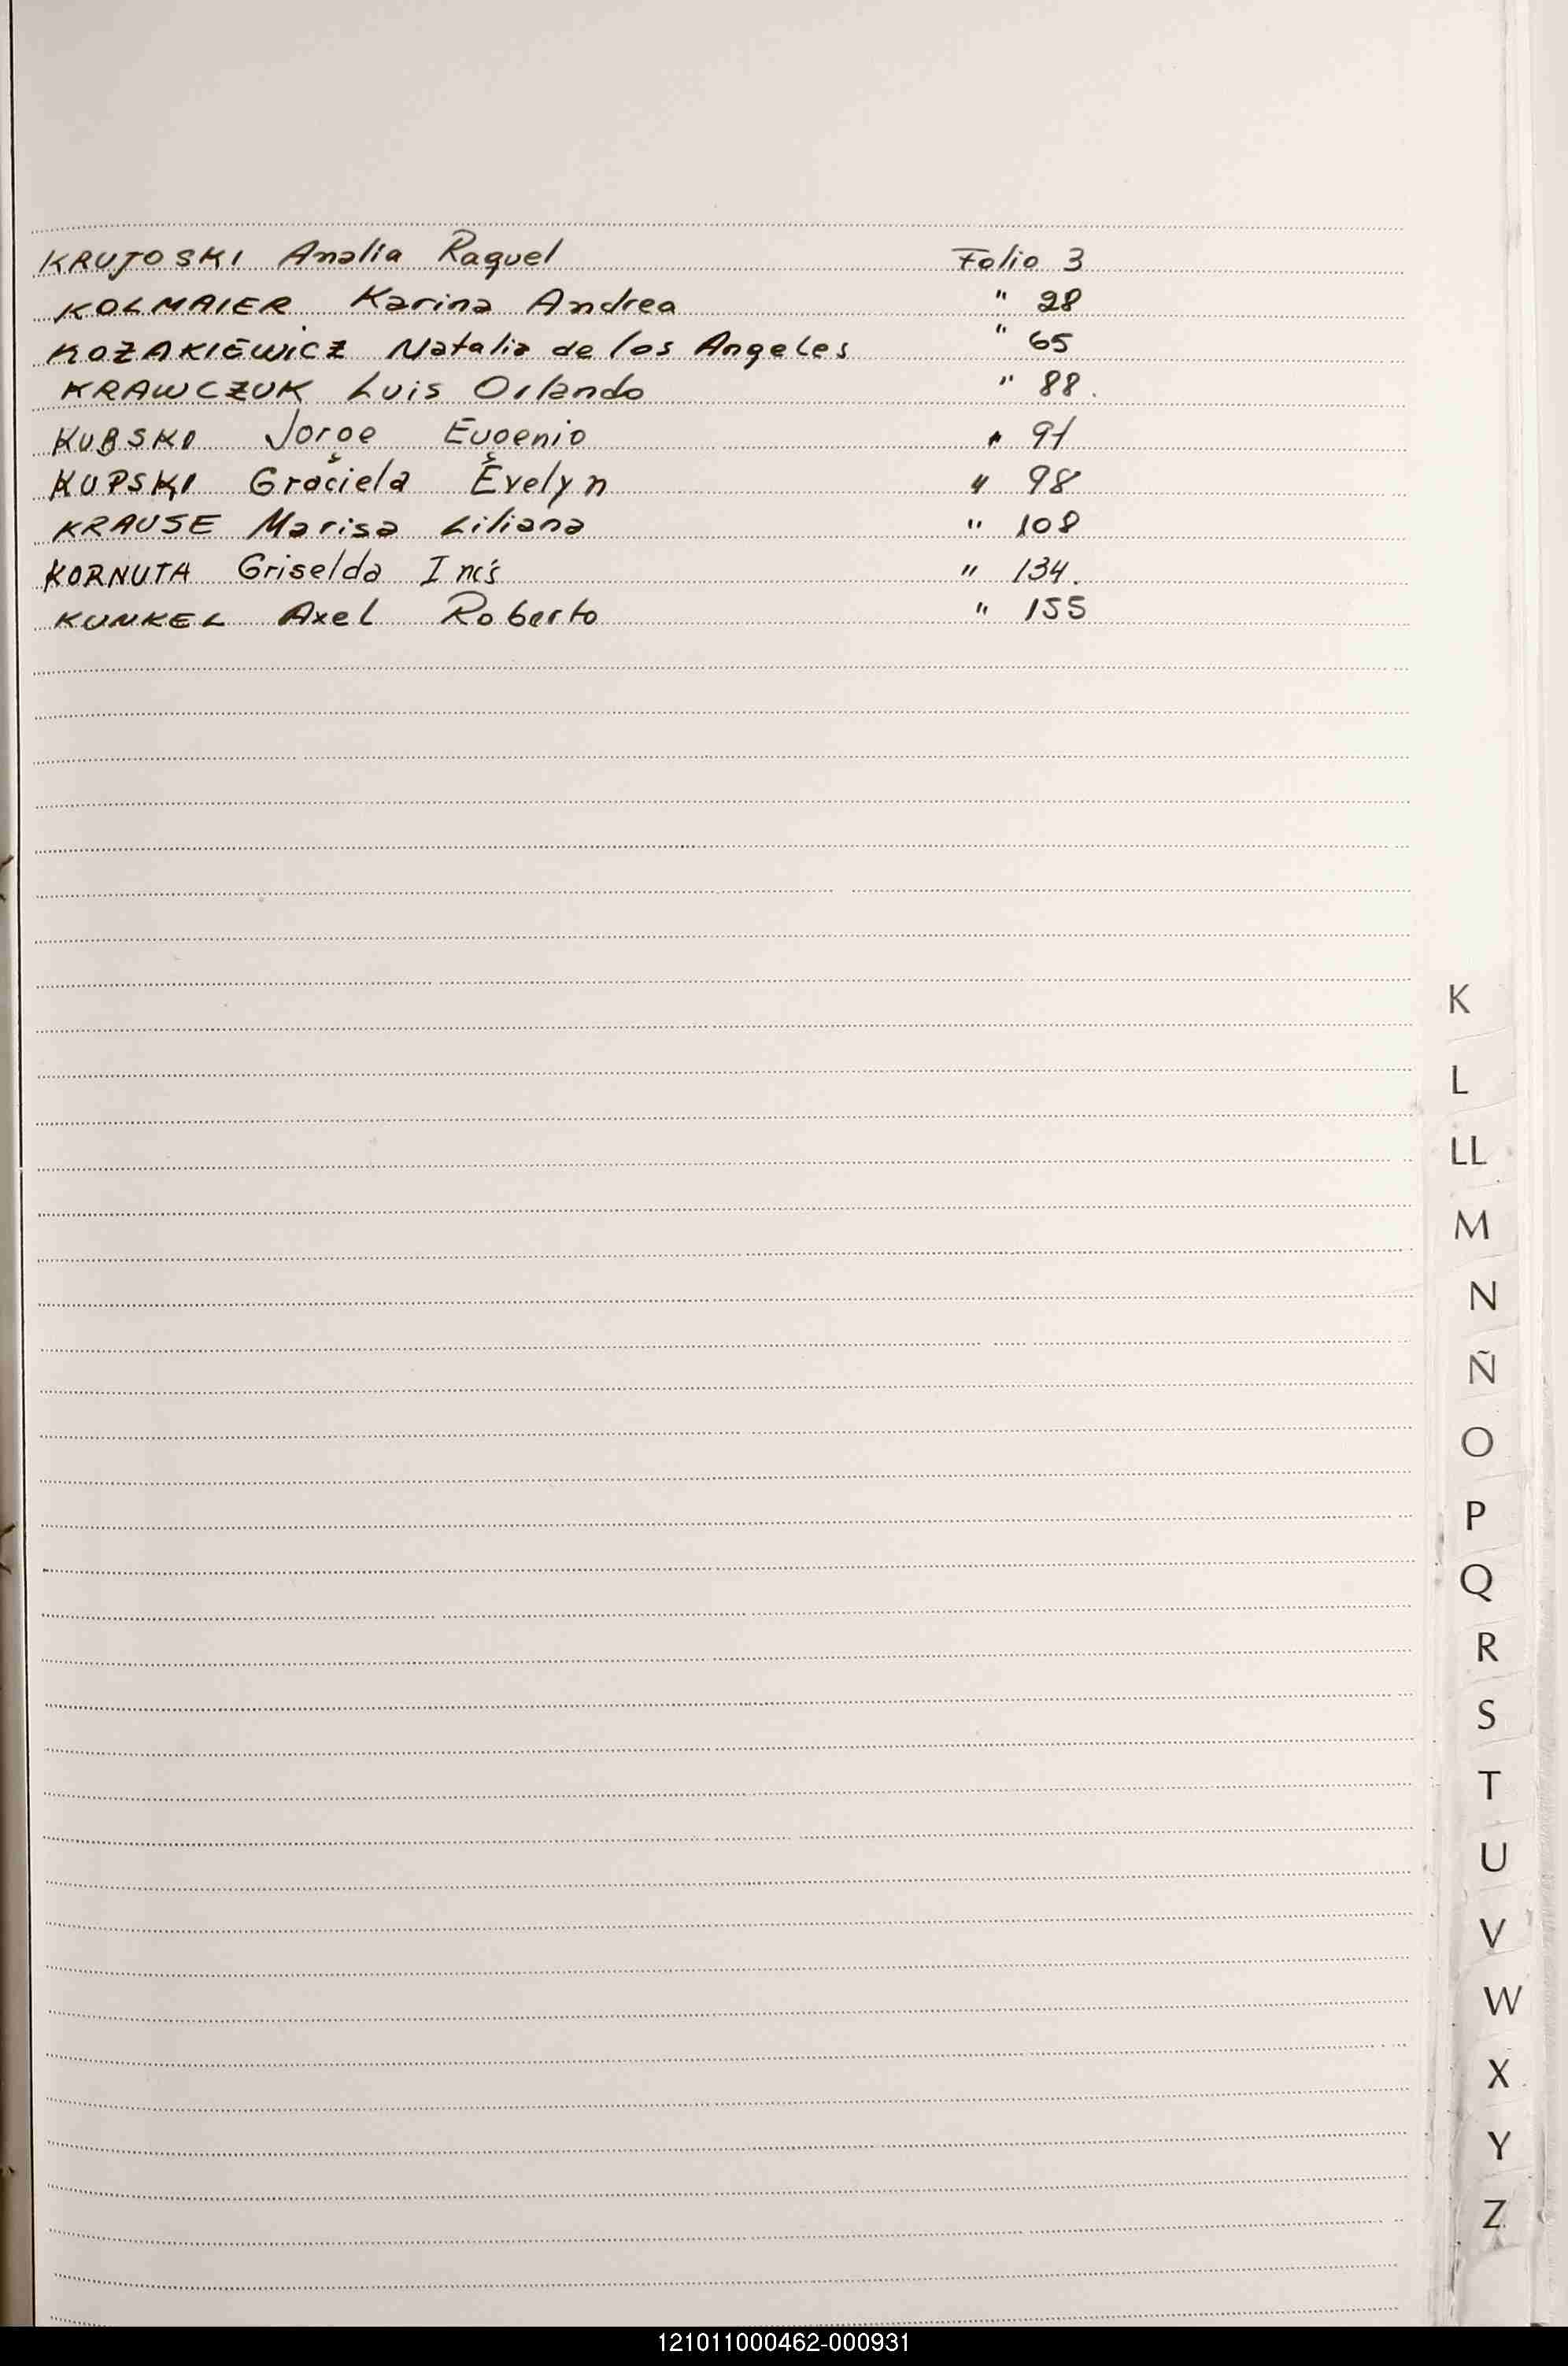 KRUJOSKI Analia Raquel Folio 3
KOLMAIER Karina Andrea " 28
KOZAKIEWICZ Natalia de los Angeles " 65
KRAWCZUK Luis Orlando " 88.
KUBSKI Jorge Eugenio " 91
KUPSKI Graciela Evelyn " 98
KRAUSE Marisa Liliana " 108
KORNUTA Griselda Inés " 134.
KUNKEL Axel Roberto " 155
K
L
LL
M
N
Ñ
O
P
Q
R
S
T
U
V
W
X
Y
Z
121011000462-000931